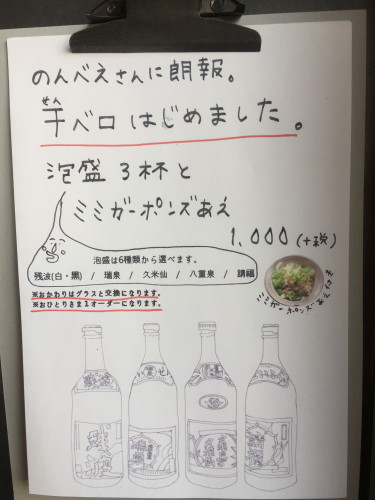 のんべえさんに朗報。
せん
竿ベロはじめました。
泡盛3杯と
ミミガーポンズあえ
1,000(+税)
泡盛は6種類から選べます。
残波(白・黒) / 瑞泉 / 久米仙 / 八重泉 / 請福
※おかわりはグラスと交換になります。
※おひとりさま1オーダーになります。
ミミガーポンズあえ